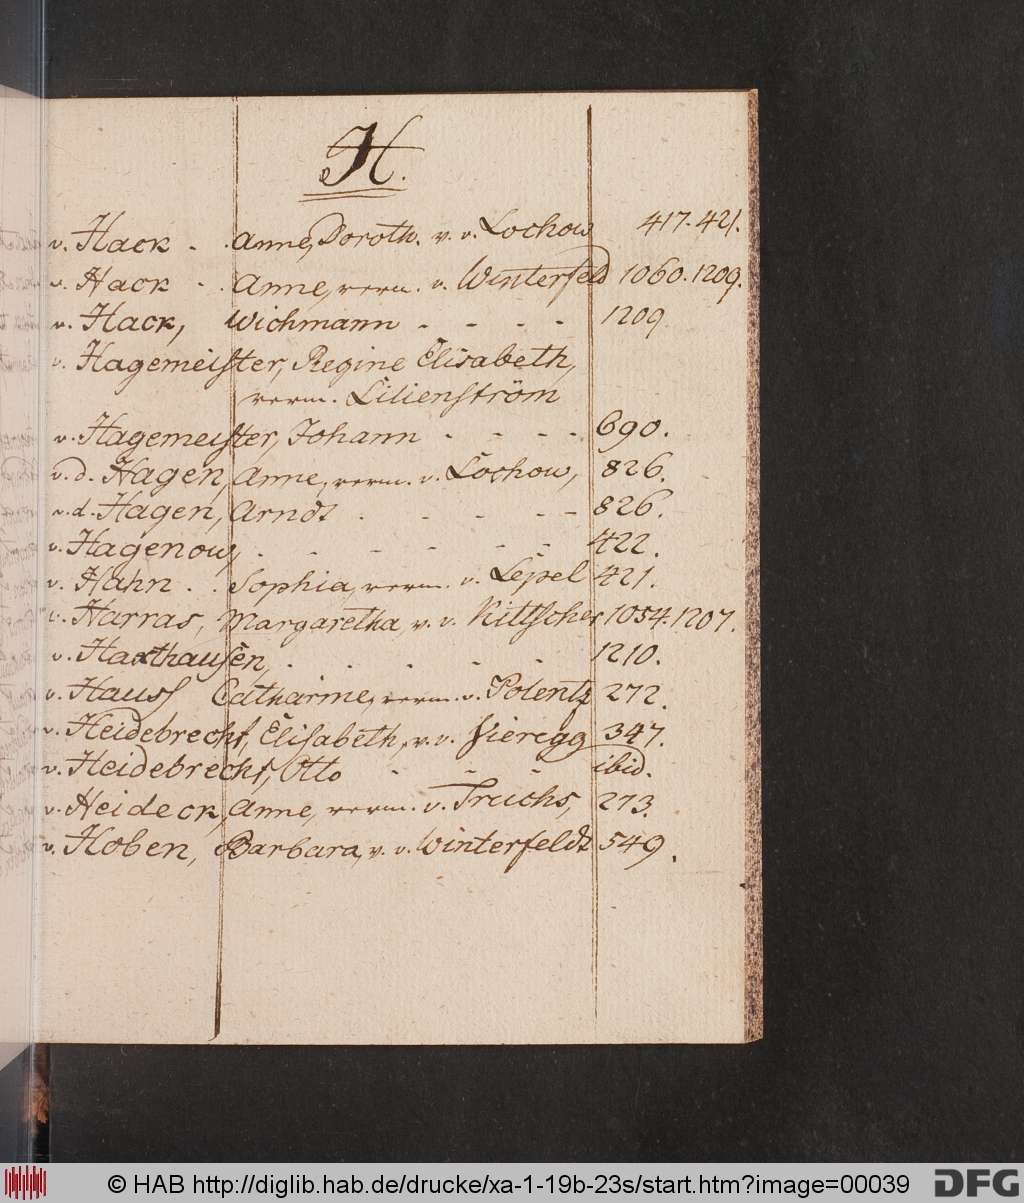 H.
v. Hack - . Anne, Doroth. v. v. Lochow 417. 421.
v. Hack - . Anne, verm. v. Winterfeld 1060. 1209.
v. Hack, Wichmann - - - - 1209
v. Hagemeister, Regine Elisabeth,
verm. Lilienström
v. Hagemeister, Johann - - - - 690.
v. d. Hagen, Anne, verm. v. Lochow, 826.
v. d. Hagen, Arndt - - - - - 826.
v. Hagenow, - - - - - - 422.
v. Hahn . . Sophia, verm. v. Lepel 421.
v. Harras, Margaretha, v. v. Kittscher 1054. 1207.
v. Haxthausen, - - - - - 1210.
v. Hauss Catharine, verm. v. Polentz 272.
v. Heidebrecht, Elisabeth, v. v. Vieregg 347.
v. Heidebrecht, Otto - - - ibid.
v. Heideck, Anne, verm. v. Truchs, 273.
v. Hoben, Barbara, v. v. Winterfeldt 549.
© HAB http://diglib.hab.de/drucke/xa-1-19b-23s/start.htm?image=00039
DFG